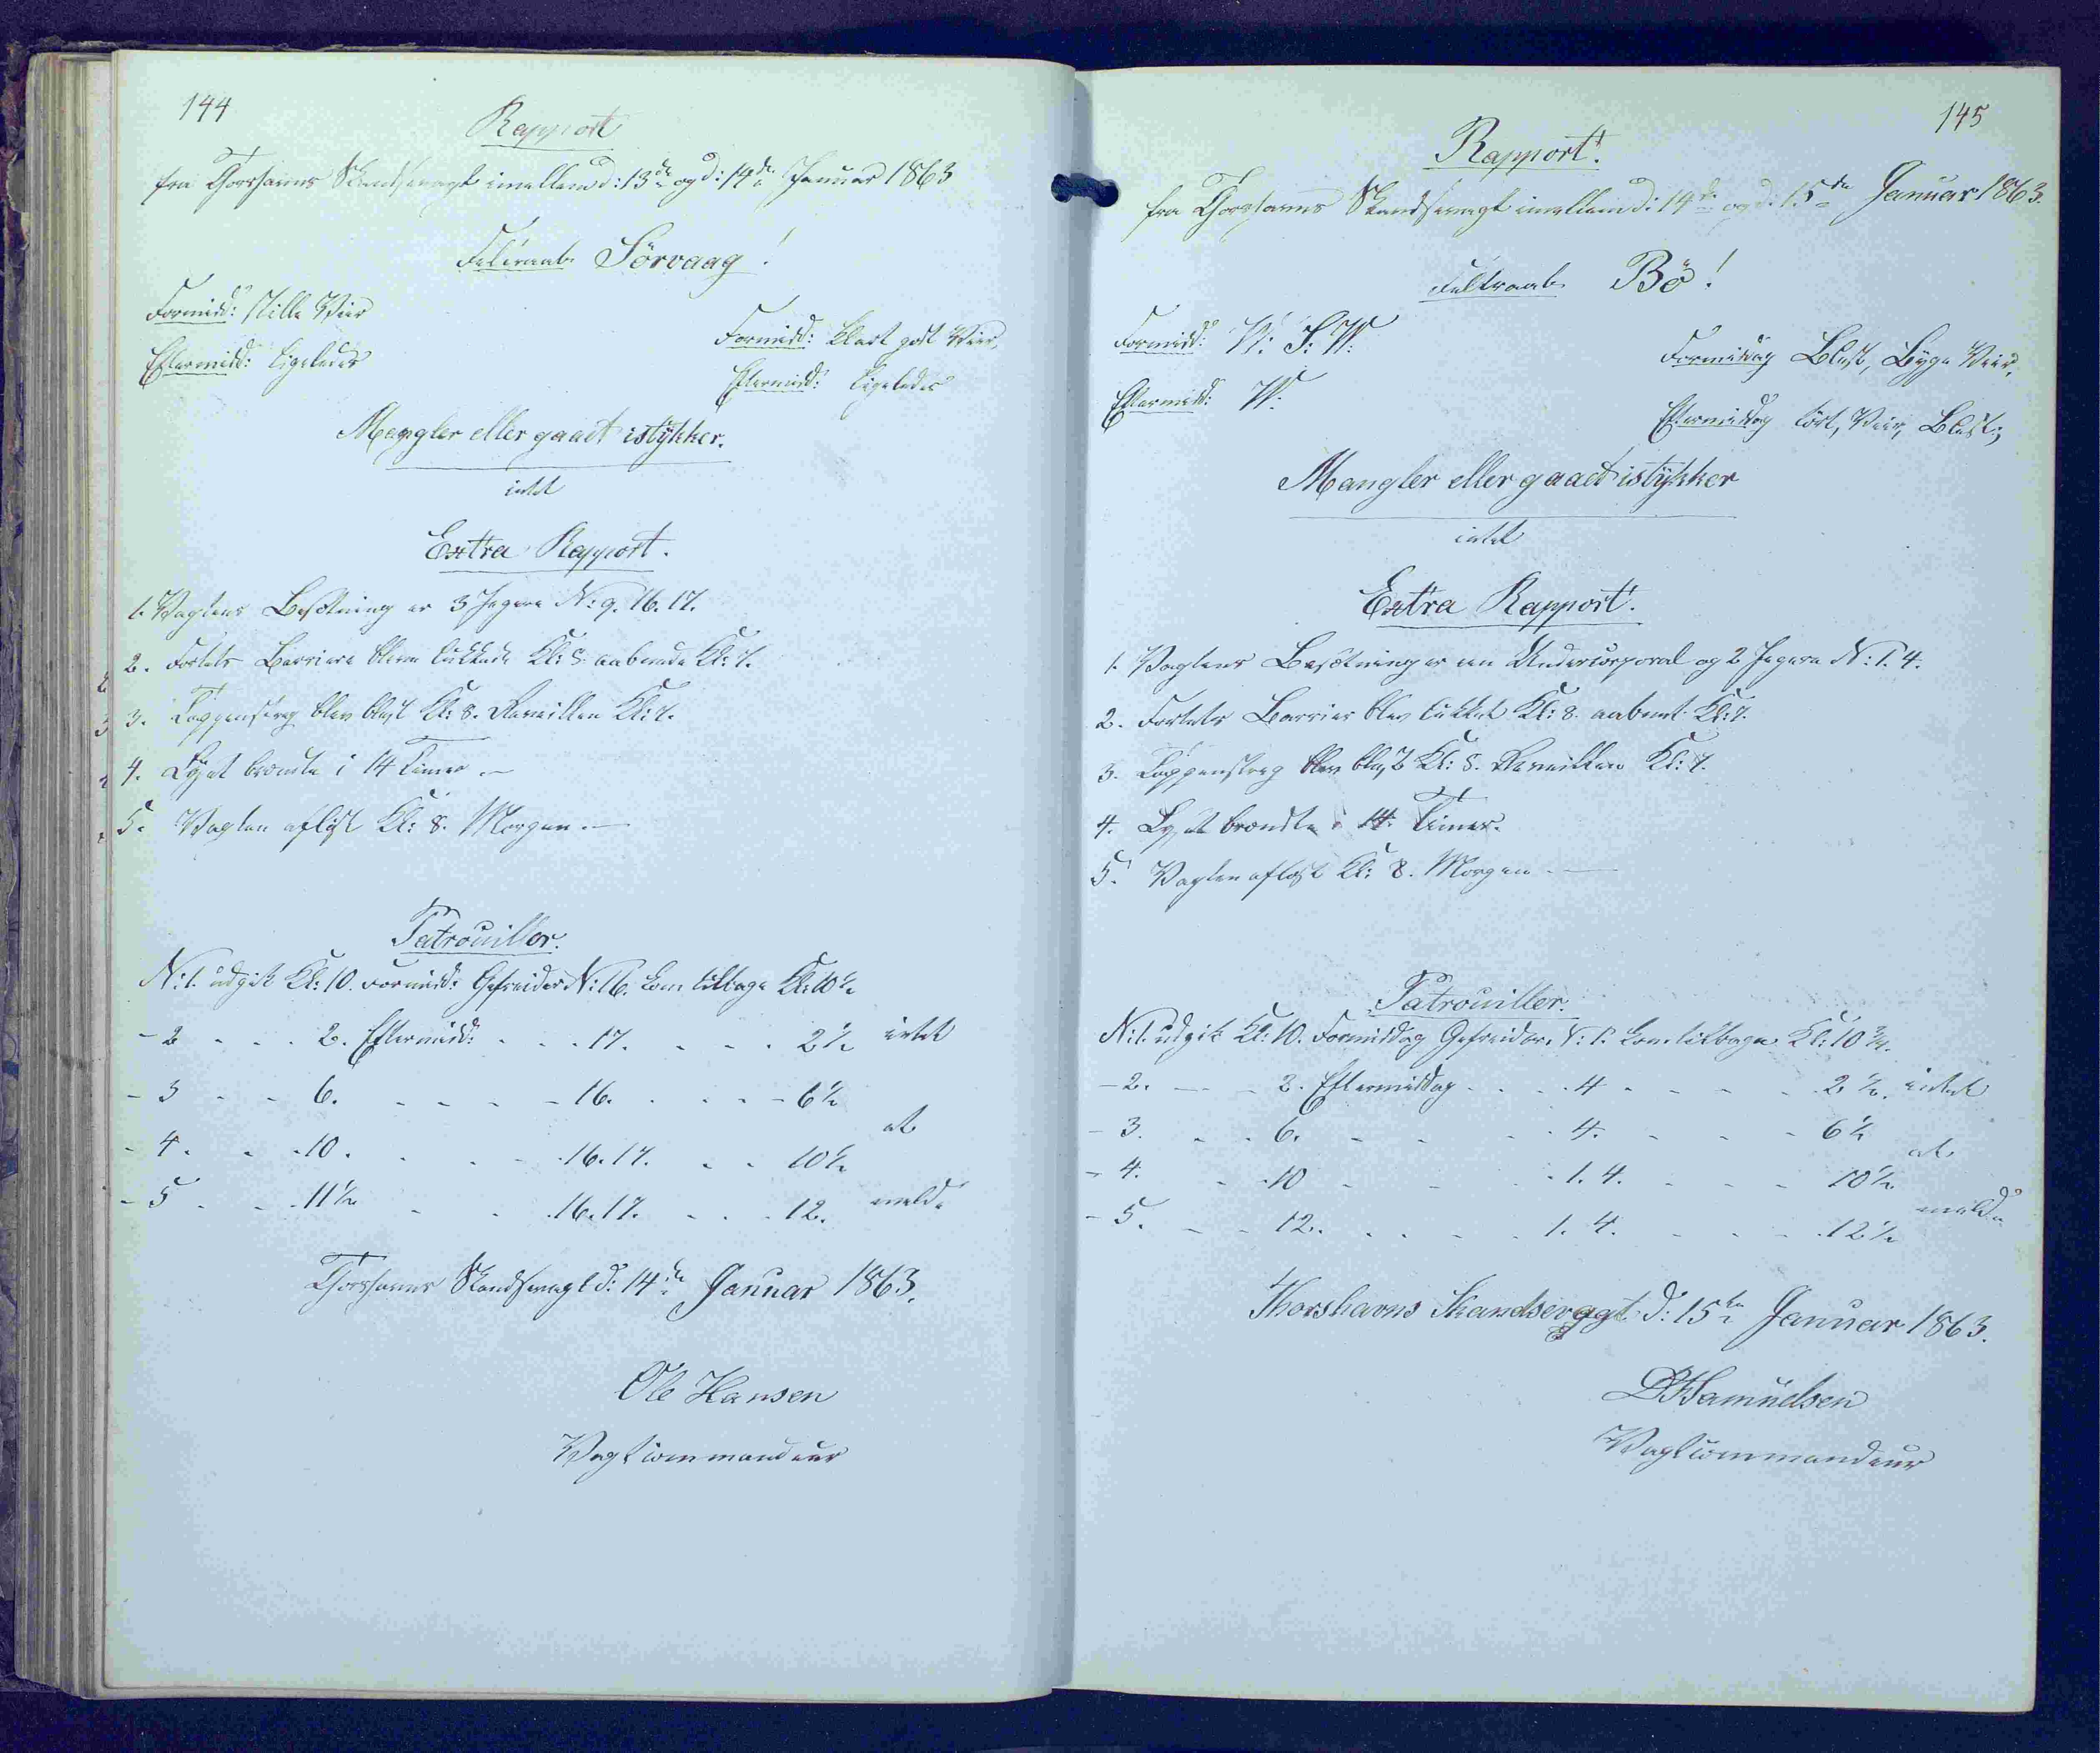 144
Rapport
fra Thorshavns Skandsevagt imellem d: 13de og d: 14de Januar 1863
Feltraab Sörvaag!
Formidd: Stille Veir
Eftermidd: Ligeledes
Formidd: Klart godt Veir,
Eftermidd: Ligeledes
Mangler eller gaaet istÿkker.
intet
Extra Rapport.
1. Vagtens Besætning er 3 Jegere N: 9. 16. 17.
2. Fortets Barriere bleve lukkede Kl: 8. aabnede Kl: 7.
3. Tappenstreg blev blæst Kl: 8. Reveillen Kl: 7.
4. Lyset brændte i 14 Timer. —
5. Vagten aflöst Kl: 8. Morgen. —
Patrouiller.
N: 1. udgik Kl: 10. Formidd: Gefreider N: 16. kom tilbage Kl: 10½
- 2 . . . 2. Eftermidd: . . . 17. . . . . 2½ intet
- 3 - - 6. - - - - 16. . . . - 6½
at
- 4. . . 10. . . - - 16. 17. . . 10½
- 5 . . 11½ . . . 16. 17. . . . 12. melde
Thorshavns Skandsevagt d: 14de Januar 1863.
Ole Hansen
Vagtcommandeur
145
Rapport.
fra Thorshavns Skandsevagt imellem d: 14de og d: 15de Januar 1863.
Feltraab Bö!
Formidd: V: S: V:
Eftermidd: V:
Formiddag Blæst, Byge Veir,
Eftermiddag tört, Veir, Blæst;
Mangler eller gaaet istÿkker
intet
Extra Rapport.
1. Vagtens Besætning er en Undercorporal og 2 Jegere N: 1. 4.
2. Fortets Barrier blev lukket Kl: 8. aabnet Kl: 7.
3. Tappenstreg blev blæst Kl: 8. Reveillen Kl: 7.
4. Lyset brændte i 14. Timer.
5. Vagten aflöst Kl: 8. Morgen. —
Patrouiller.
N: 1. udgik Kl: 10. Formiddag Gefreider N: 1. kom tilbage Kl: 10¾.
- 2. — - 2. Eftermiddag . . . 4 - - - . 2½. intet
- 3. . . 6. - - - . 4. - - - 6½
at
- 4. . . 10 - - . 1. 4. - - - 10½
melde
- 5. - - 12. . . . - 1. 4. - - - 12½
Thorshavns Skandsevagt d: 15de Januar 1863.
DHSamuelsen
Vagtcommandeur